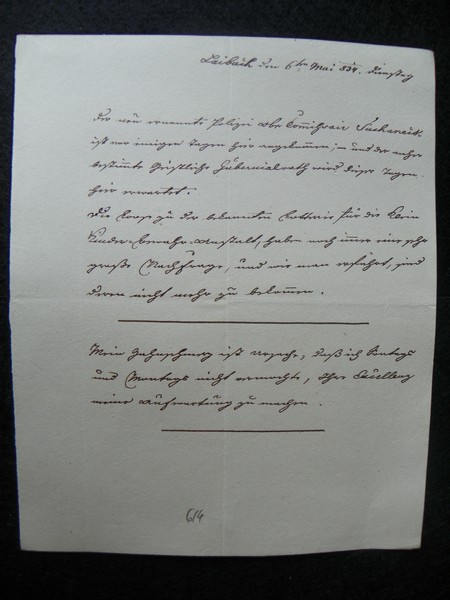 Laibach den 6ten Mai 834. Dienstag
Der neu ernannte Polizei Ober Commissair
ist vor einigen Tagen hier angekommen; – und der anher
bestimmte Geistliche Gubernialrath wird dieser Tagen
hier erwartet.
Die Loose zu der bekannten Lotterie für die Klein
Kinder-Bewahr-Anstalt, haben noch immer eine sehr
große Nachfrage, und wie man erfährt, sind
deren nicht mehr zu bekommen.
Mein Zahnschmerz ist Ursache, daß ich Sontags
und Montags nicht vermochte, Ihrer Excellenz
meine Aufwartung zu machen.
6/4